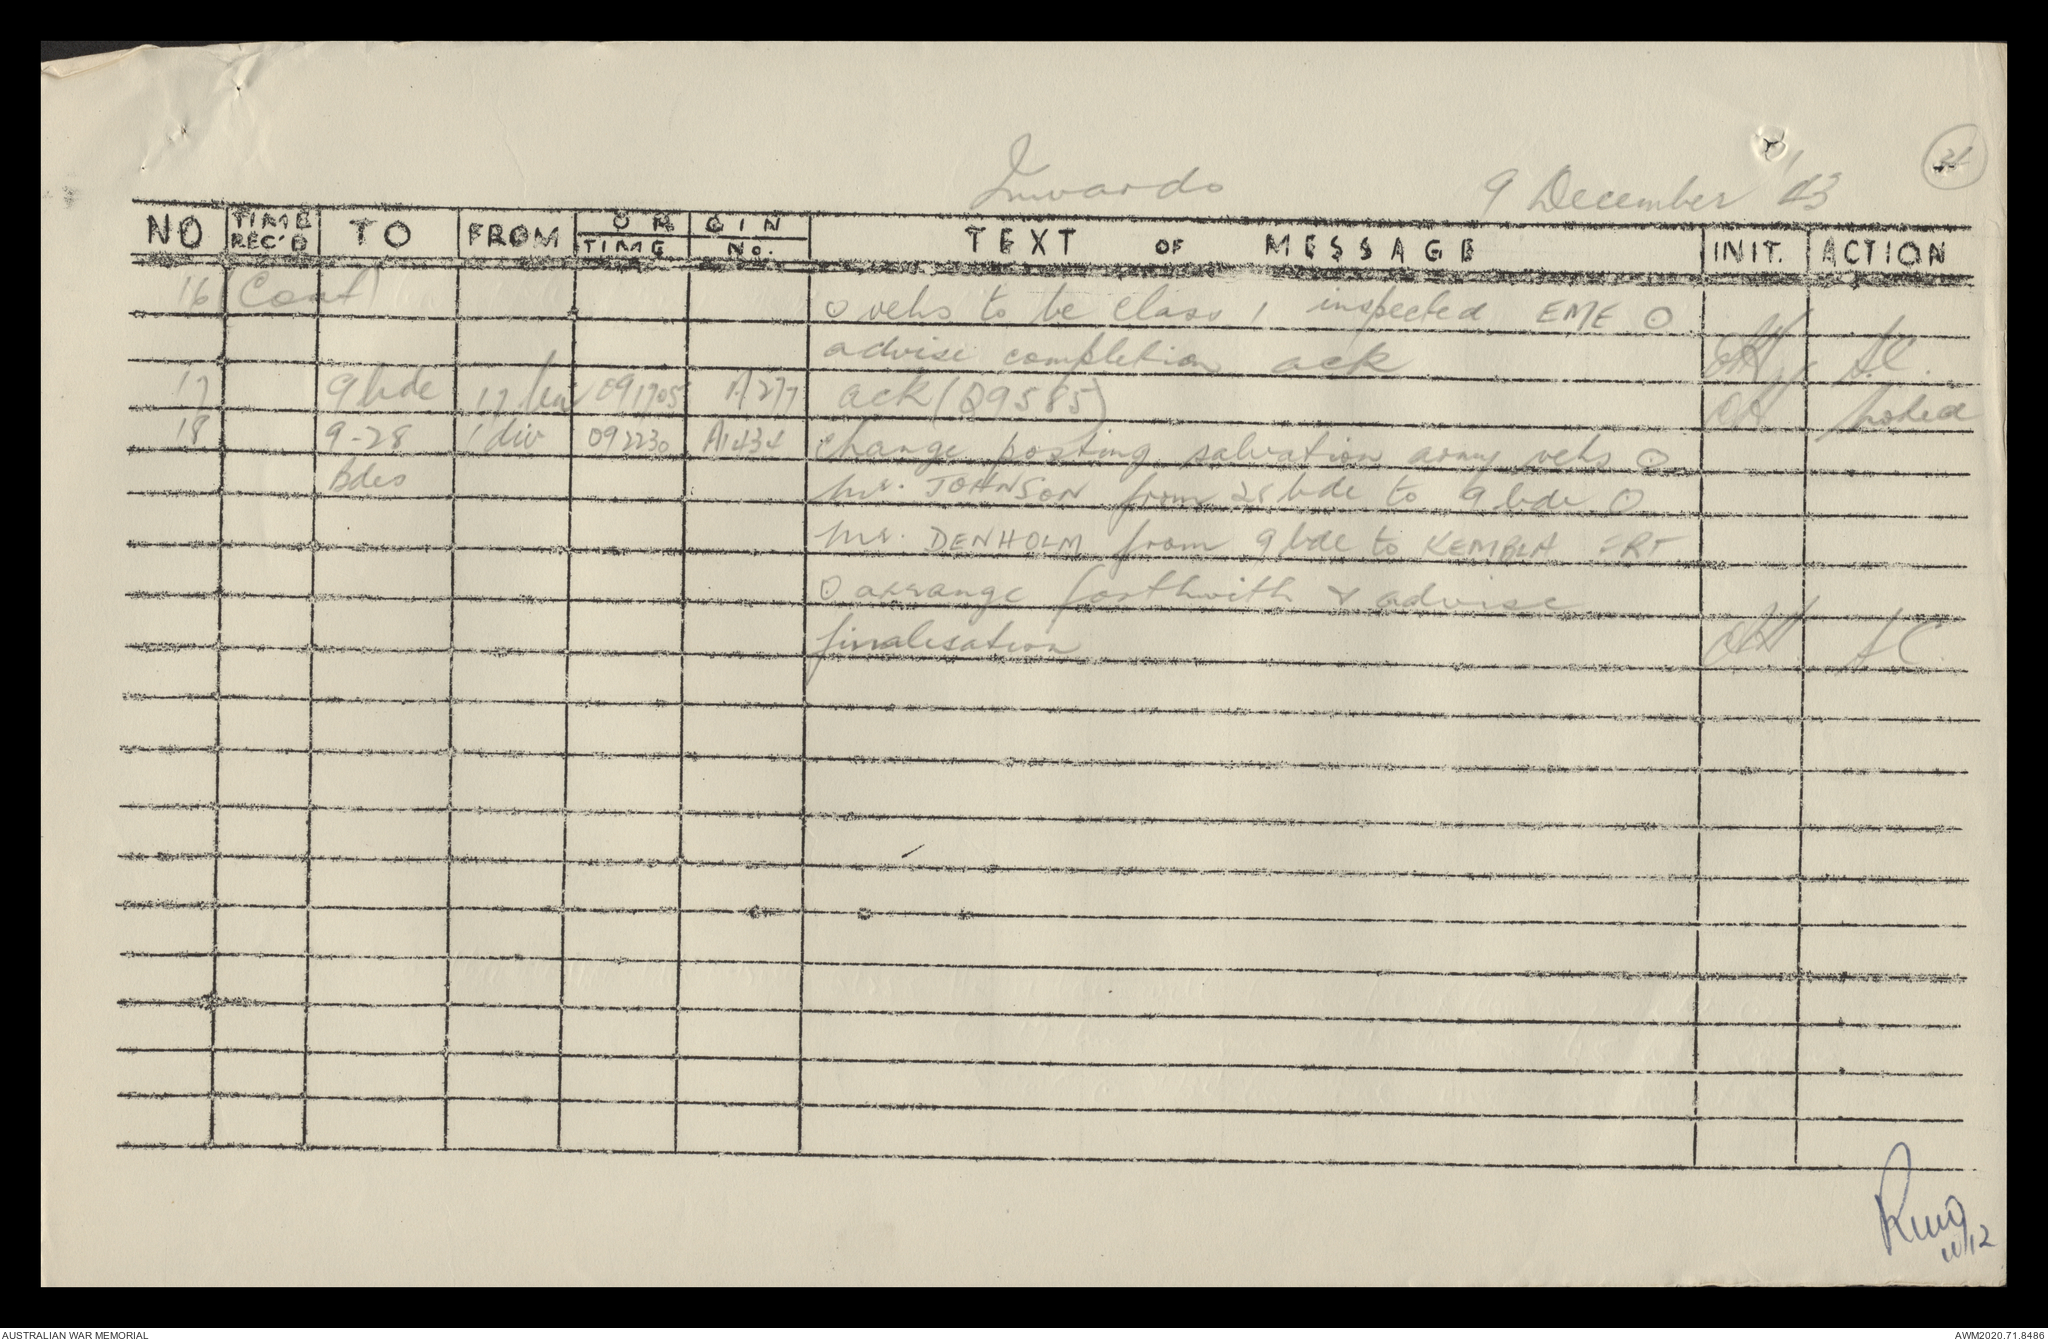 Inwards 9 December '43
NO TIME REC'D TO FROM ORIGIN TIME No. TEXT OF MESSAGE INIT. ACTION
16 (Cont) ⊙ vehs to be class 1 inspected EME ⊙
advise completion ack A.C.
17 9 bde 17 bn 091705 A277 ack (Q9585) noted
18 9-28 1 div 092230 A1434 change posting salvation army vehs ⊙
Bdes Mr. JOHNSON from 28 bde to 9 bde ⊙
Mr. DENHOLM from 9 bde to KEMBLA FRT
⊙ arrange forthwith & advise
finalisation A.C.
11/12
AUSTRALIAN WAR MEMORIAL AWM2020.71.8486